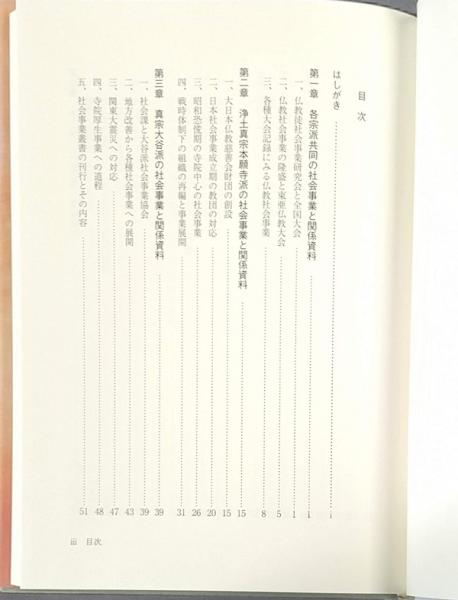 目次
はしがき i
第一章 各宗派共同の社会事業と関係資料 1
一、仏教徒社会事業研究会と全国大会 1
二、仏教社会事業の隆盛と東亜仏教大会 5
三、各種大会記録にみる仏教社会事業 8
第二章 浄土真宗本願寺派の社会事業と関係資料 15
一、大日本仏教慈善会財団の創設 15
二、日本社会事業成立期の教団の対応 20
三、昭和恐慌期の寺院中心の社会事業 26
四、戦時体制下の組織の再編と事業展開 31
第三章 真宗大谷派の社会事業と関係資料 39
一、社会課と大谷派社会事業協会 39
二、地方改善から各種社会事業への展開 43
三、関東大震災への対応 47
四、寺院厚生事業への道程 48
五、社会事業叢書の刊行とその内容 51
iii 目次